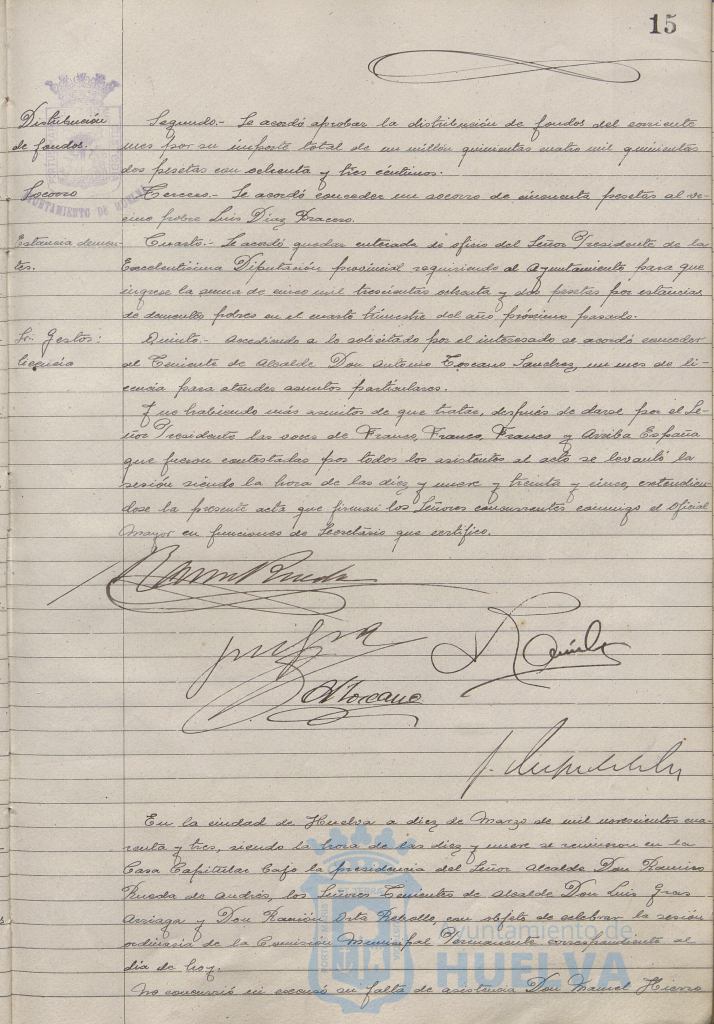 15
Distribución
de fondos.
Segundo.- Se acordó aprobar la distribución de fondos del corriente
mes por su importe total de un millón quinientas cuatro mil quinientas
dos pesetas con ochenta y tres céntimos.
Socorro
Tercero.- Se acordó conceder un socorro de cincuenta pesetas al ve-
cino pobre Luis Díaz
AYUNTAMIENTO DE HUELVA
Estancia demen-
tes.
Cuarto.- Se acordó quedar enterada de oficio del Señor Presidente de la
Excelentísima Diputación provincial requiriendo al Ayuntamiento para que
ingrese la suma de cinco mil trescientas ochenta y dos pesetas por estancias
de dementes pobres en el cuarto trimestre del año próximo pasado.
Sr. Gestor:
licencia
Quinto.- Accediendo a lo solicitado por el interesado se acordó conceder
al Teniente de Alcalde Don Antonio Toscano Sanchez, un mes de li-
cencia para atender asuntos particulares.
Y no habiendo más asuntos de que tratar, después de darse por el Se-
ñor Presidente las voces de Franco, Franco, Franco y Arriba España
que fueron contestadas por todos los asistentes al acto se levantó la
sesión siendo la hora de las diez y nueve y treinta y cinco, extendien-
dose la presente acta que firman los Señores concurrentes conmigo el Oficial
Mayor en funciones de Secretario que certifico.
A Toscano
En la ciudad de Huelva a diez de Marzo de mil novecientos cua-
renta y tres, siendo la hora de las diez y nueve se reunieron en la
Casa Capitular bajo la presidencia del Señor Alcalde Don Ramiro
Rueda de Andrés, los Señores Tenientes de Alcalde Don Luis Gras
Arriaga y Don Ramón Orta Rebollo, con objeto de celebrar la sesión
ordinaria de la Comisión Municipal Permanente correspondiente al
día de hoy.
No concurrió ni excusó su falta de asistencia Don Manuel Hierro
Ayuntamiento de
HUELVA